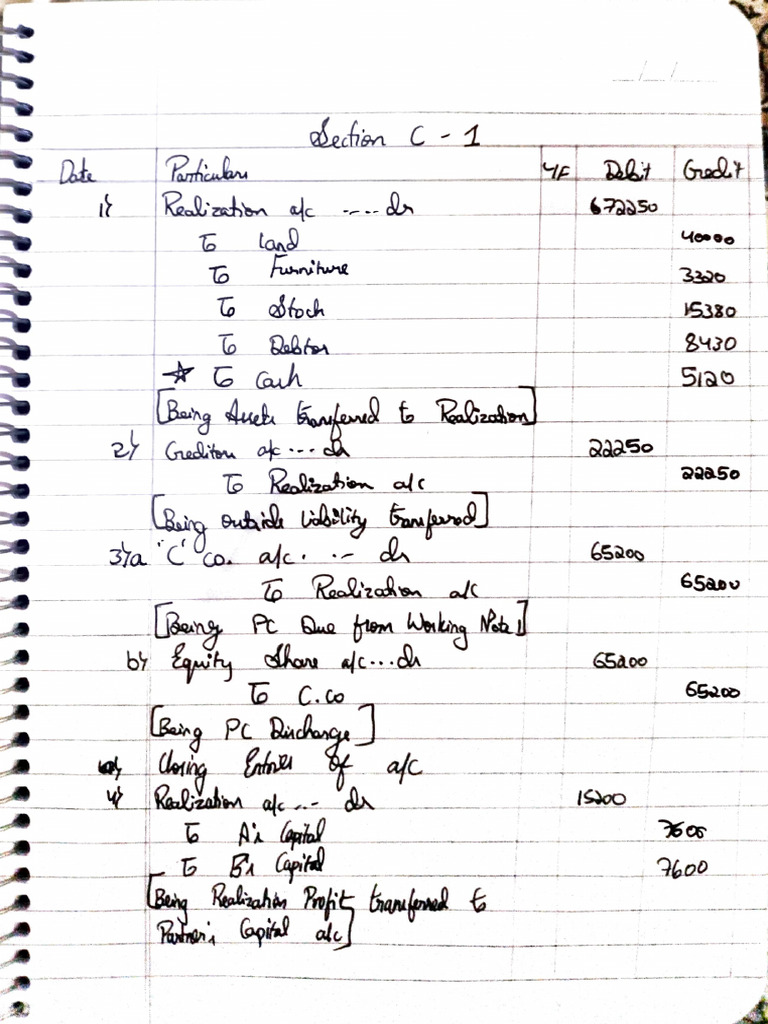 Section C - 1
Date Particulars Debit Credit
1) Realization a/c ..... dr 672250
To Land 40000
To Furniture 3320
To Stock 15380
To Debtor 8430
☆ To Cash 5120
[Being Assets transferred to Realization]
2) Creditors a/c ... dr 22250
To Realization a/c 22250
[Being outside liability transferred]
3)a 'C' Co. a/c. .- dr 65200
To Realization a/c 65200
[Being PC Due from Working Note 1]
b) Equity Share a/c ... dr 65200
To C. co 65200
[Being PC Discharge]
Closing Entries of a/c
4) Realization a/c ... dr 15200
To A's Capital 7600
To B's Capital 7600
[Being Realization Profit transferred to
Partner's Capital a/c]